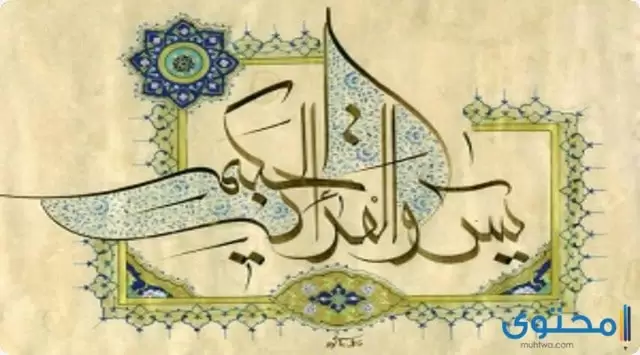 يس والقرآن الحكيم
محتوى
muhtwa.com